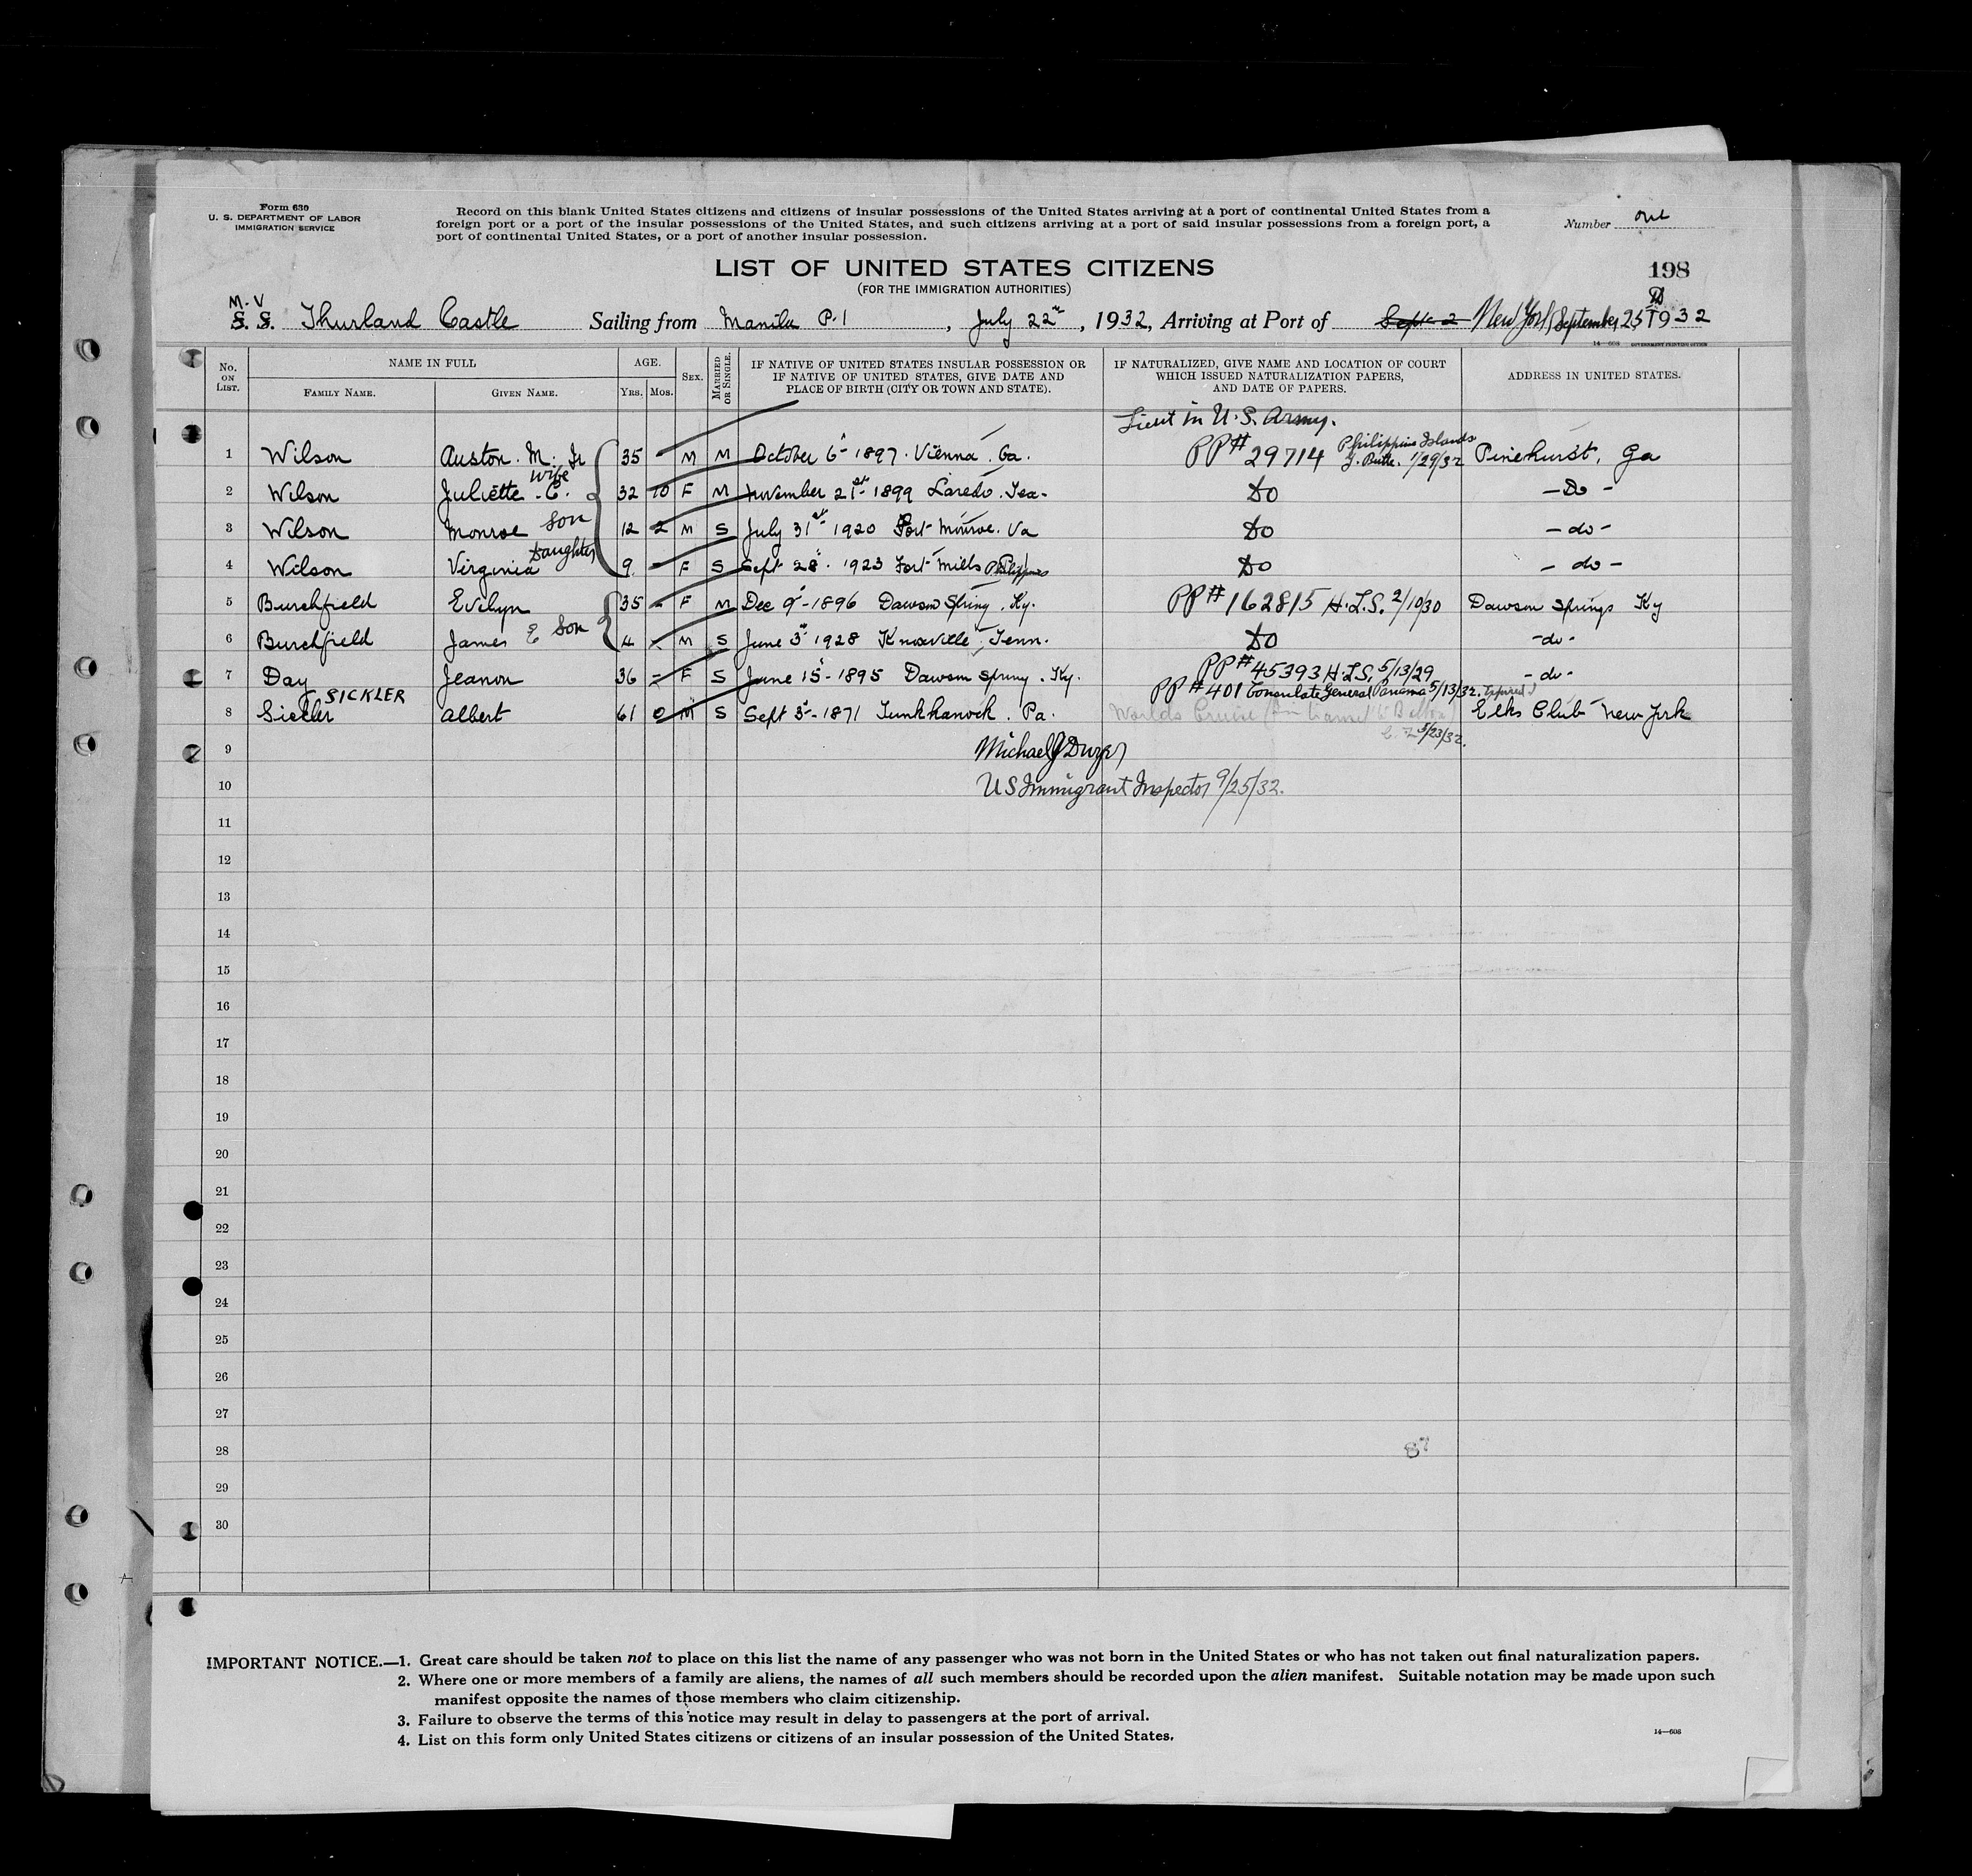 Form 630
U. S. DEPARTMENT OF LABOR
IMMIGRATION SERVICE
Record on this blank United States citizens and citizens of insular possessions of the United States arriving at a port of continental United States from a
foreign port or a port of the insular possessions of the United States, and such citizens arriving at a port of said insular possessions from a foreign port, a
port of continental United States, or a port of another insular possession.
Number one
LIST OF UNITED STATES CITIZENS
(FOR THE IMMIGRATION AUTHORITIES)
198
M. V
S. S. Thurland Castle Sailing from Manila P.I , July 22nd , 1932, Arriving at Port of Sept 2 New York September 25 1932
14—608 GOVERNMENT PRINTING OFFICE
No. ON LIST. NAME IN FULL AGE. SEX. MARRIED OR SINGLE. IF NATIVE OF UNITED STATES INSULAR POSSESSION OR IF NATIVE OF UNITED STATES, GIVE DATE AND PLACE OF BIRTH (CITY OR TOWN AND STATE). IF NATURALIZED, GIVE NAME AND LOCATION OF COURT WHICH ISSUED NATURALIZATION PAPERS, AND DATE OF PAPERS. ADDRESS IN UNITED STATES.
FAMILY NAME. GIVEN NAME. YRS. MOS.
Lieut in U.S. Army.
1 Wilson Auston. M. Jr 35 - M M October 6 - 1897. Vienna. Ga. PP# 29714 Philippine Islands 1/29/32 Pinehurst, Ga
2 Wilson Juliette. C. wife 32 10 F M November 21st 1899 Laredo. Tex. Do - Do -
3 Wilson Monroe son 12 2 M S July 31st 1920 Fort Monroe. Va Do - do -
4 Wilson Virginia Daughter 9 - F S Sept 28. 1923 Fort Mills Philippines Do - do -
5 Burchfield Evelyn 35 - F M Dec 9 - 1896 Dawson Spring. Ky. PP# 162815 H.L.S. 2/10/30 Dawson Springs Ky
6 Burchfield James E Son 4 - M S June 3 1928 Knoxville, Tenn. Do - do -
7 Day Jeanon 36 - F S June 15 - 1895 Dawson Spring. Ky. PP# 45393 H.L.S. 5/13/29 - do -
SICKLER PP# 401 Consulate General Panama 5/13/32. Expired
8 Sickler Albert 61 0 M S Sept 3 - 1871 Tunkhanock. Pa. Worlds Cruise Elks Club New York
5/23/32.
9 Michael J Dwyer
10 US Immigrant Inspector 9/25/32.
11
12
13
14
15
16
17
18
19
20
21
22
23
24
25
26
27
28
29
30
IMPORTANT NOTICE.—1. Great care should be taken not to place on this list the name of any passenger who was not born in the United States or who has not taken out final naturalization papers.
2. Where one or more members of a family are aliens, the names of all such members should be recorded upon the alien manifest. Suitable notation may be made upon such
manifest opposite the names of those members who claim citizenship.
3. Failure to observe the terms of this notice may result in delay to passengers at the port of arrival.
4. List on this form only United States citizens or citizens of an insular possession of the United States.
14—608